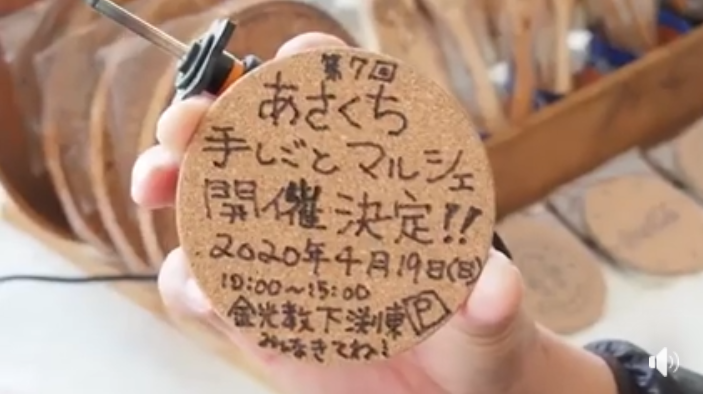 第7回
あさくち
手しごとマルシェ
開催決定!!
2020年4月19日(日)
10:00〜15:00
金光教下渕東P
みんなきてね!